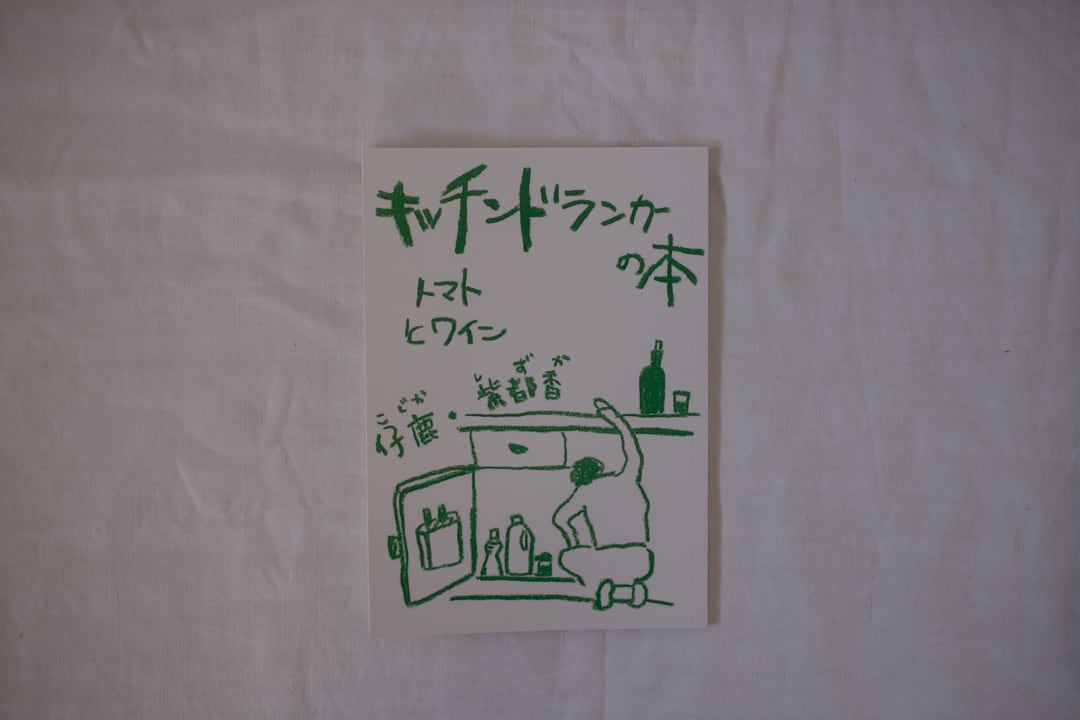 キッチンドランカー
の本
トマト
とワイン
しずか
紫都香
こじか
仔鹿・